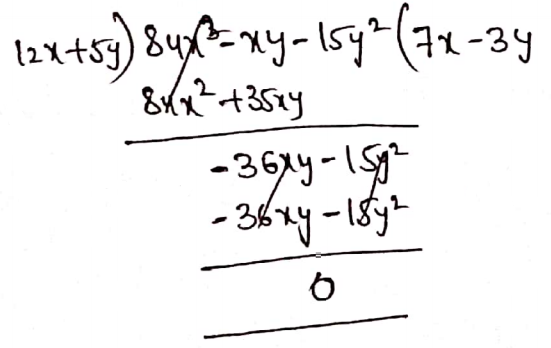 12x+5y) 84x² - xy - 15y² (7x - 3y
84x² + 35xy
- 36xy - 15y²
- 36xy - 15y²
0